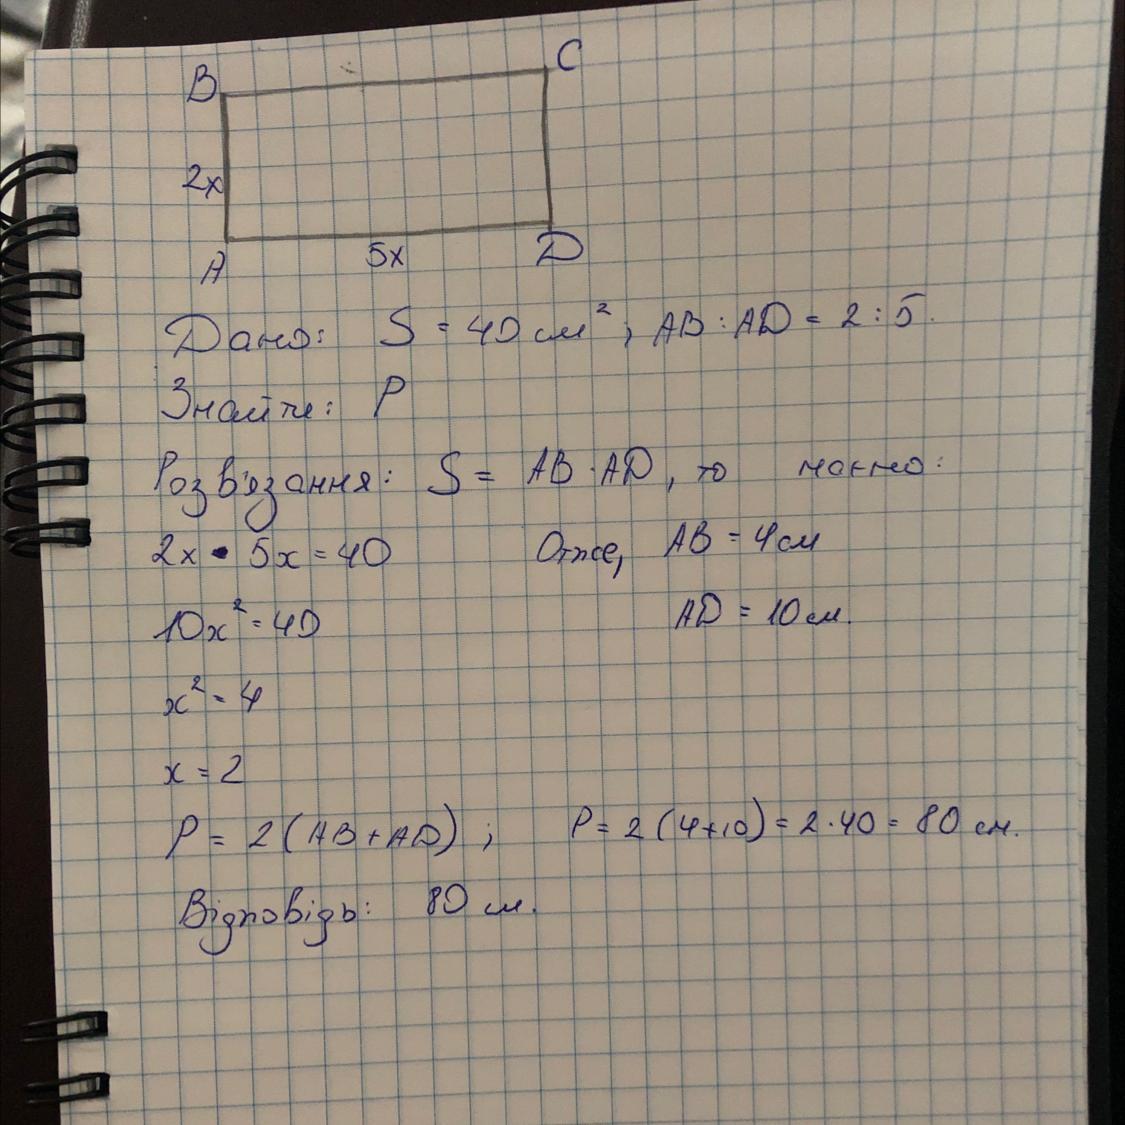 B
C
2x
A
5x
D
Дано: S = 40 см², AB : AD = 2 : 5.
Знайти: P
Розв'язання: S = AB · AD, то маємо:
2x · 5x = 40
Отже, AB = 4 см
10x² = 40
AD = 10 см.
x² = 4
x = 2
P = 2 (AB + AD) ; P = 2 (4+10) = 2 · 40 = 80 см.
Відповідь: 80 см.